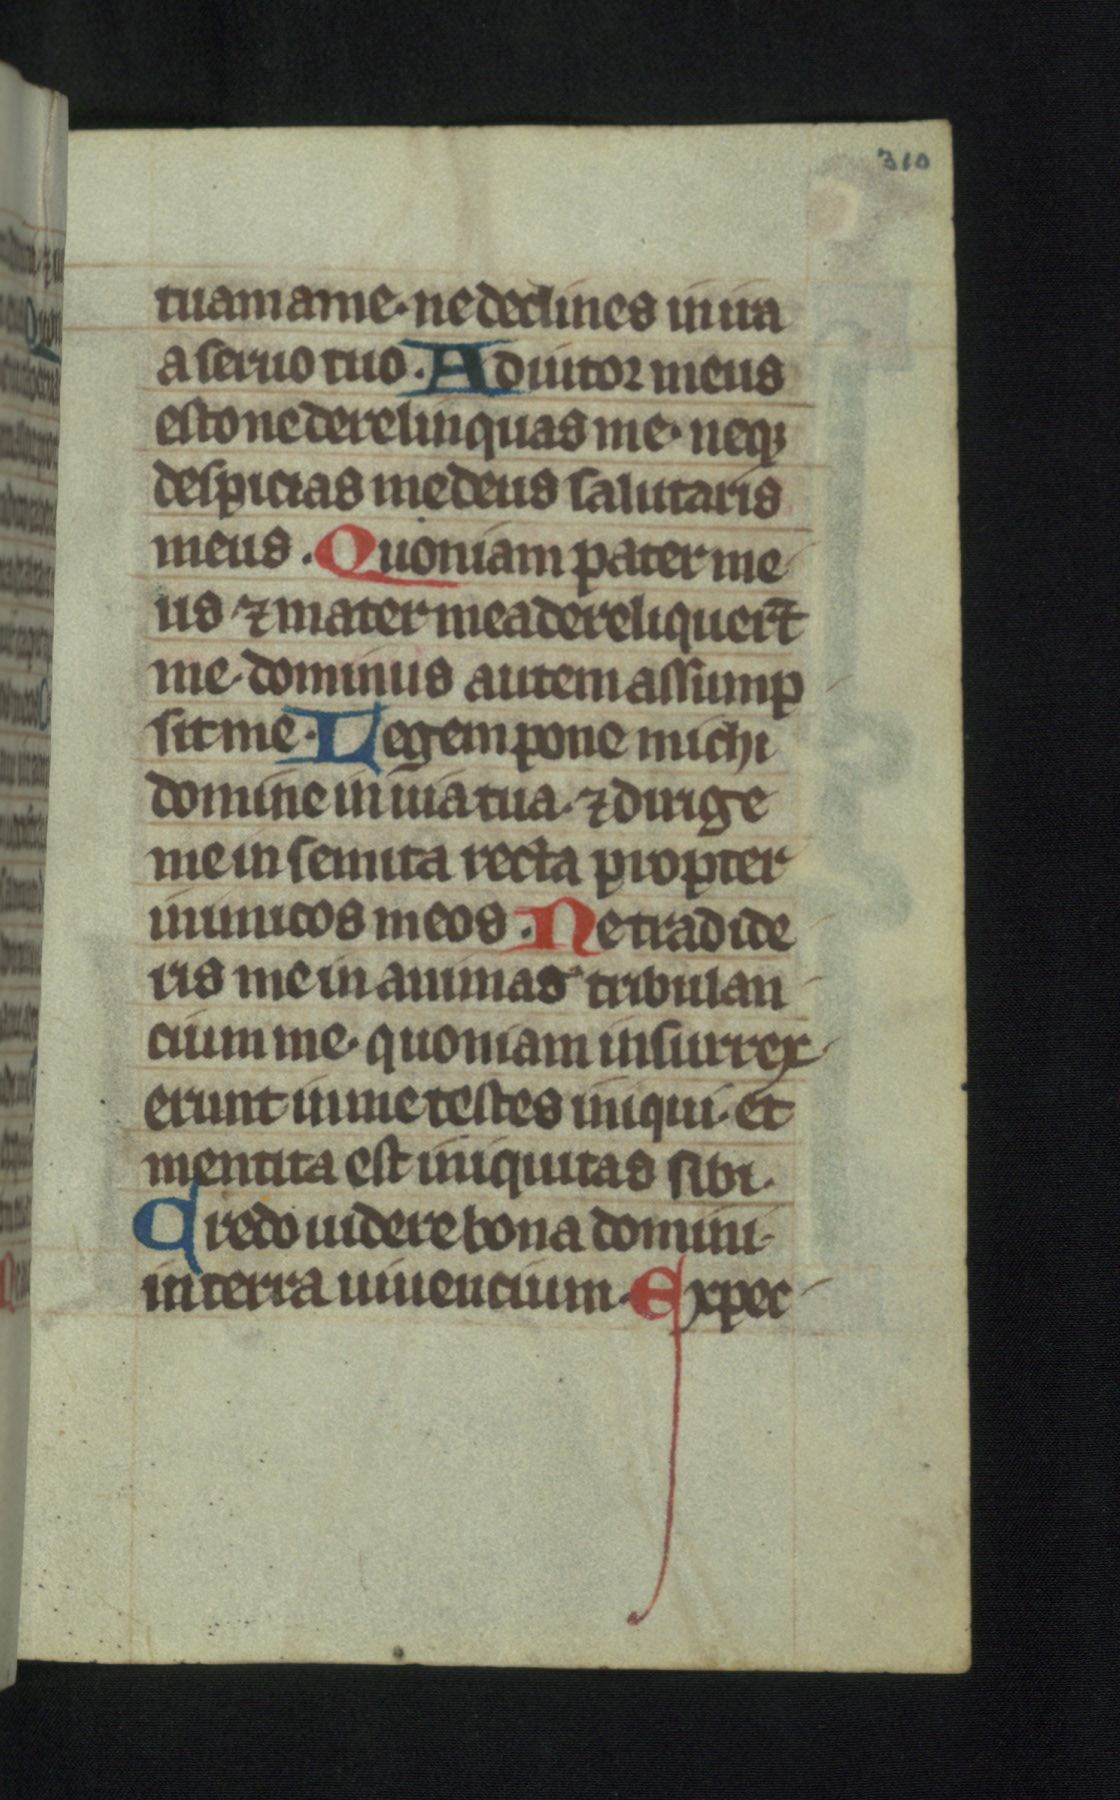 310
tuam a me · ne declines in ira
a seruo tuo . Adiutor meus
esto ne derelinquas me · neqꝫ
despicias me deus salutaris
meus . Quoniam pater me
us ⁊ mater mea dereliquer̄t
me · dominus autem assump
sit me · Legem pone michi
domine in uia tua · ⁊ dirige
me in semita recta propter
inimicos meos . Ne tradide
ris me in animas tribulan
cium me · quoniam insurrex
erunt in me testes iniqui · et
mentita est iniquitas sibi ·
Credo uidere bona domini ·
in terra uiuencium · Expec